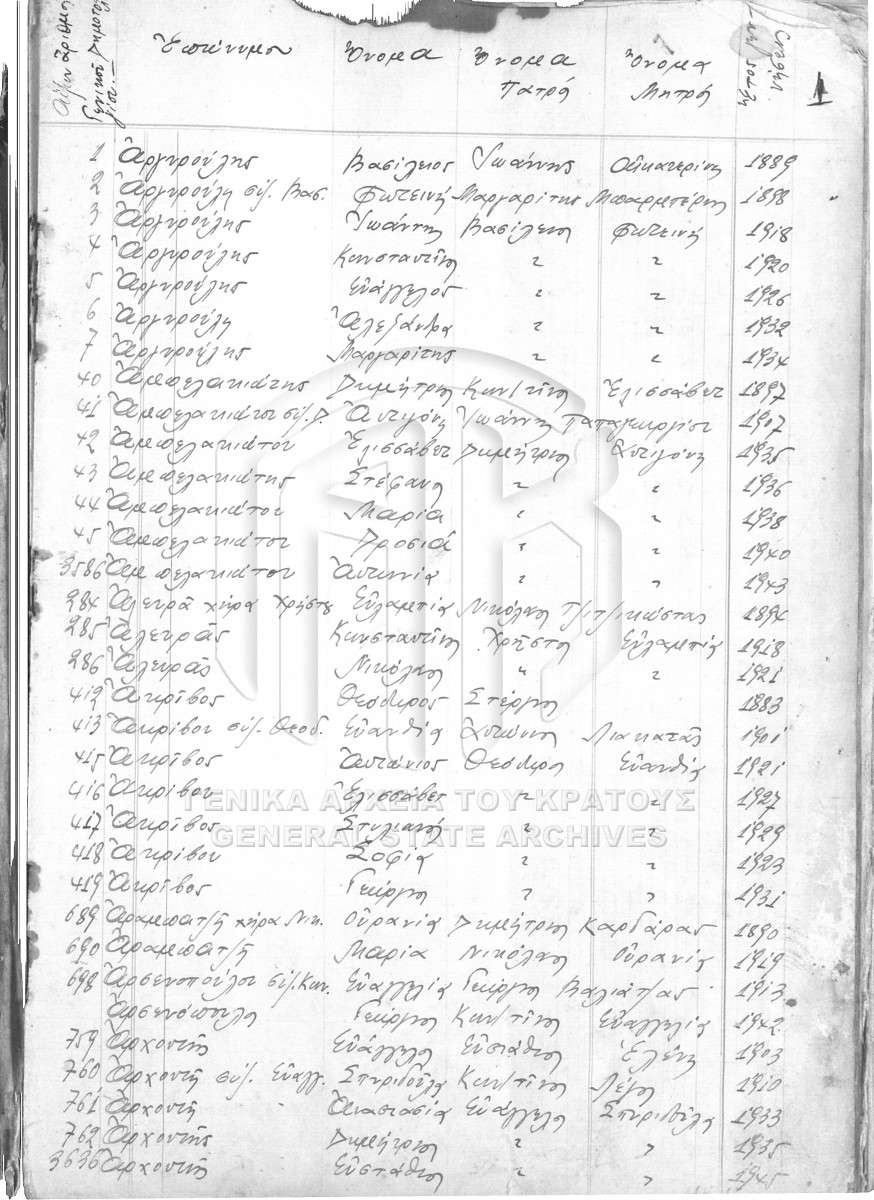 Αὔξων ἀριθμὸς Γενικοῦ Δημοτολογίου Ἐπώνυμον Ὄνομα Ὄνομα Πατρός Ὄνομα Μητρός 1
1 Ἀργυρούλης Βασίλειος Ἰωάννης Αἰκατερίνη 1889
2 Ἀργυρούλη σύζ. Βασ. Φωτεινή Μαργαρίτης Μπαρμπέρης 1898
3 Ἀργυρούλης Ἰωάννης Βασίλειος Φωτεινή 1918
4 Ἀργυρούλης Κωνσταντῖνος " " 1920
5 Ἀργυρούλης Εὐάγγελος " " 1926
6 Ἀργυρούλη Ἀλεξάνδρα " " 1932
7 Ἀργυρούλης Μαργαρίτης " " 1934
40 Ἀμπελακιώτης Δημήτριος Κων/τῖνος Ἐλισσάβετ 1897
41 Ἀμπελακιώτου σύζ. Δ. Ἀντιγόνη Ἰωάννης Παπαγεωργίου 1907
42 Ἀμπελακιώτου Ἐλισσάβετ Δημήτριος Ἀντιγόνη 1935
43 Ἀμπελακιώτης Στέφανος " " 1936
44 Ἀμπελακιώτου Μαρία " " 1938
45 Ἀμπελακιώτου Δροσιά " " 1940
3586 Ἀμπελακιώτου Ἀντωνία " " 1943
284 Ἀλευρᾶ χήρα Χρήστου Εὐλαμπία Νικόλαος 1894
285 Ἀλευρᾶς Κωνσταντῖνος Χρῆστος Εὐλαμπία 1918
286 Ἀλευρᾶς Νικόλαος " " 1921
412 Ἀκρῖβος Θεόδωρος Στέργιος 1883
413 Ἀκρίβου σύζ. Θεοδ. Εὐανθία Ἀντώνιος Λιακατᾶς 1901
415 Ἀκρῖβος Ἀντώνιος Θεόδωρος Εὐανθία 1921
416 Ἀκρίβου Ἐλισσάβετ " " 1927
417 Ἀκρῖβος Στυλιανός " " 1929
418 Ἀκρίβου Σοφία " " 1923
419 Ἀκρῖβος Γεώργιος " " 1931
689 Ἀραμπατζῆ χήρα Νικ. Οὐρανία Δημήτριος Καρδάρας 1890
690 Ἀραμπατζῆ Μαρία Νικόλαος Οὐρανία 1919
698 Ἀρσενοπούλου σύζ. Κων. Εὐαγγελία Γεώργιος Βαλιάτζας 1913
Ἀρσενόπουλος Γεώργιος Κων/τῖνος Εὐαγγελία 1942
759 Ἀρχοντῆς Εὐάγγελος Εὐστάθιος Ἑλένη 1903
760 Ἀρχοντῆ σύζ. Εὐαγγ. Σπυριδούλα Κων/τῖνος 1910
761 Ἀρχοντῆ Ἀναστασία Εὐάγγελος Σπυριδούλα 1933
762 Ἀρχοντῆς Δημήτριος " " 1935
3636 Ἀρχοντῆς Εὐστάθιος " " 1945
ΓΕΝΙΚΑ ΑΡΧΕΙΑ ΤΟΥ ΚΡΑΤΟΥΣ
GENERAL STATE ARCHIVES